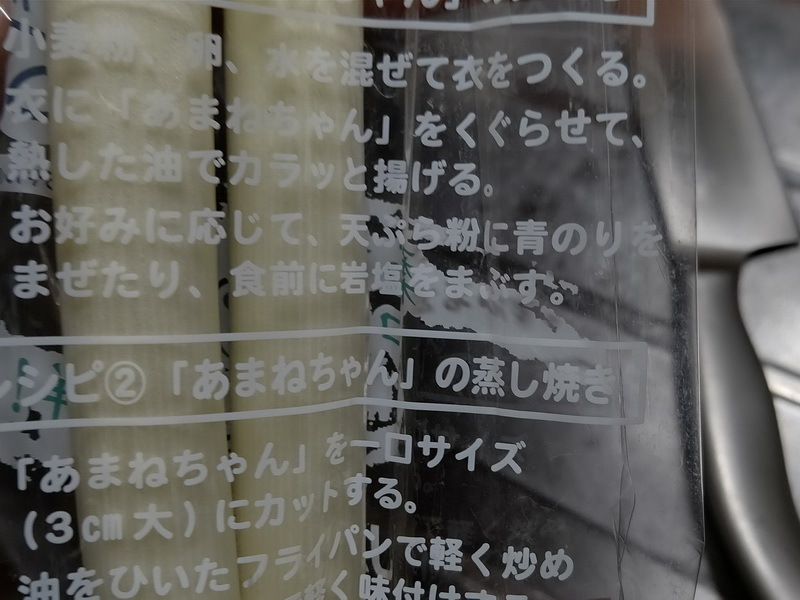 ちゃん」
小麦粉、卵、水を混ぜて衣をつくる。
衣に「あまねちゃん」をくぐらせて、
熱した油でカラッと揚げる。
お好みに応じて、天ぷら粉に青のりを
まぜたり、食前に岩塩をまぶす。
レシピ②「あまねちゃん」の蒸し焼き
「あまねちゃん」を一口サイズ
(3㎝大)にカットする。
油をひいたフライパンで軽く炒め
軽く味付けする